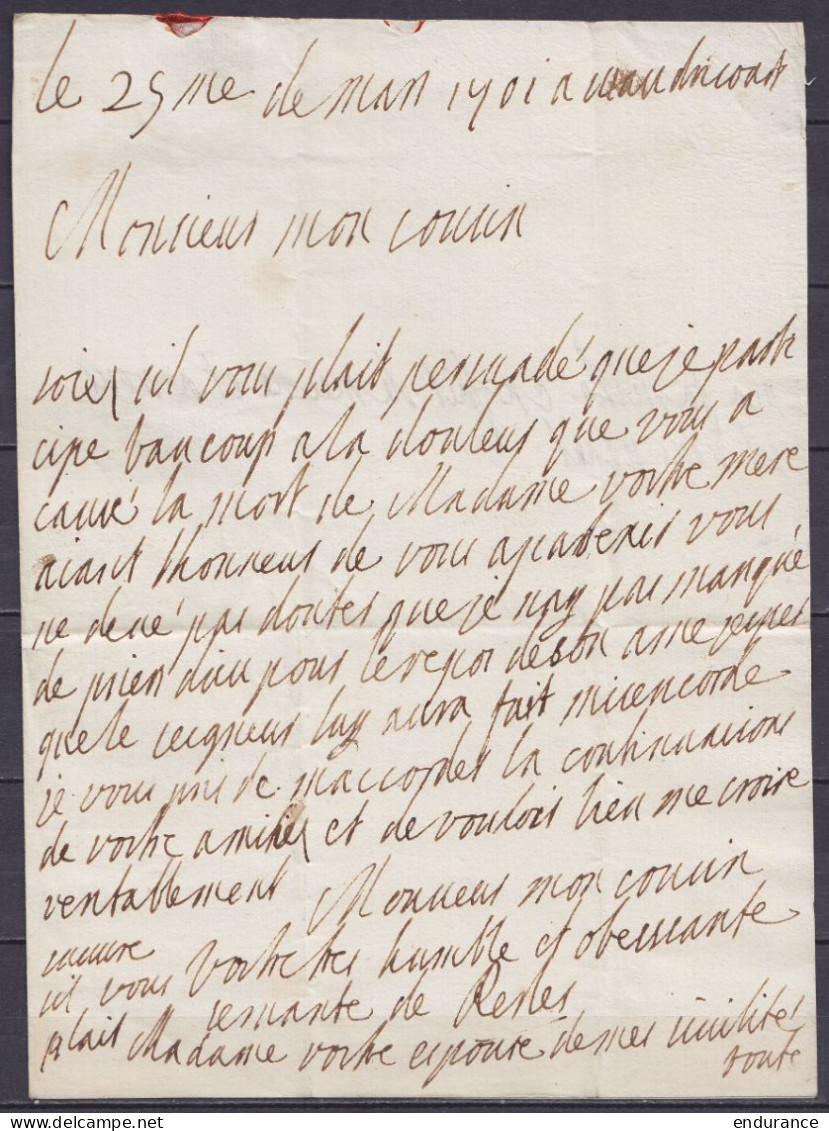 le 25me de mars 1701 a vaudricourt
Monsieur mon cousin
soies sil vous plait persuadé que je parti
cipe baucoup a la douleur que vous a
causé la mort de Madame vostre mere
aiant lhonneur de vous apartenir vous
ne devé pas douter que je nay pas manqué
de prier dieu pour le repos de son ame jespere
que le seigneur luy aura fait misericorde
je vous pri de maccorder la continuacions
de vostre amitiés et de vouloir bien me croire
veritablement Monsieur mon cousin
vostre tres humble et obeissante
servante de
assure
sil vous
plait Madame vostre espouse de mes sivilités
toute
endurance